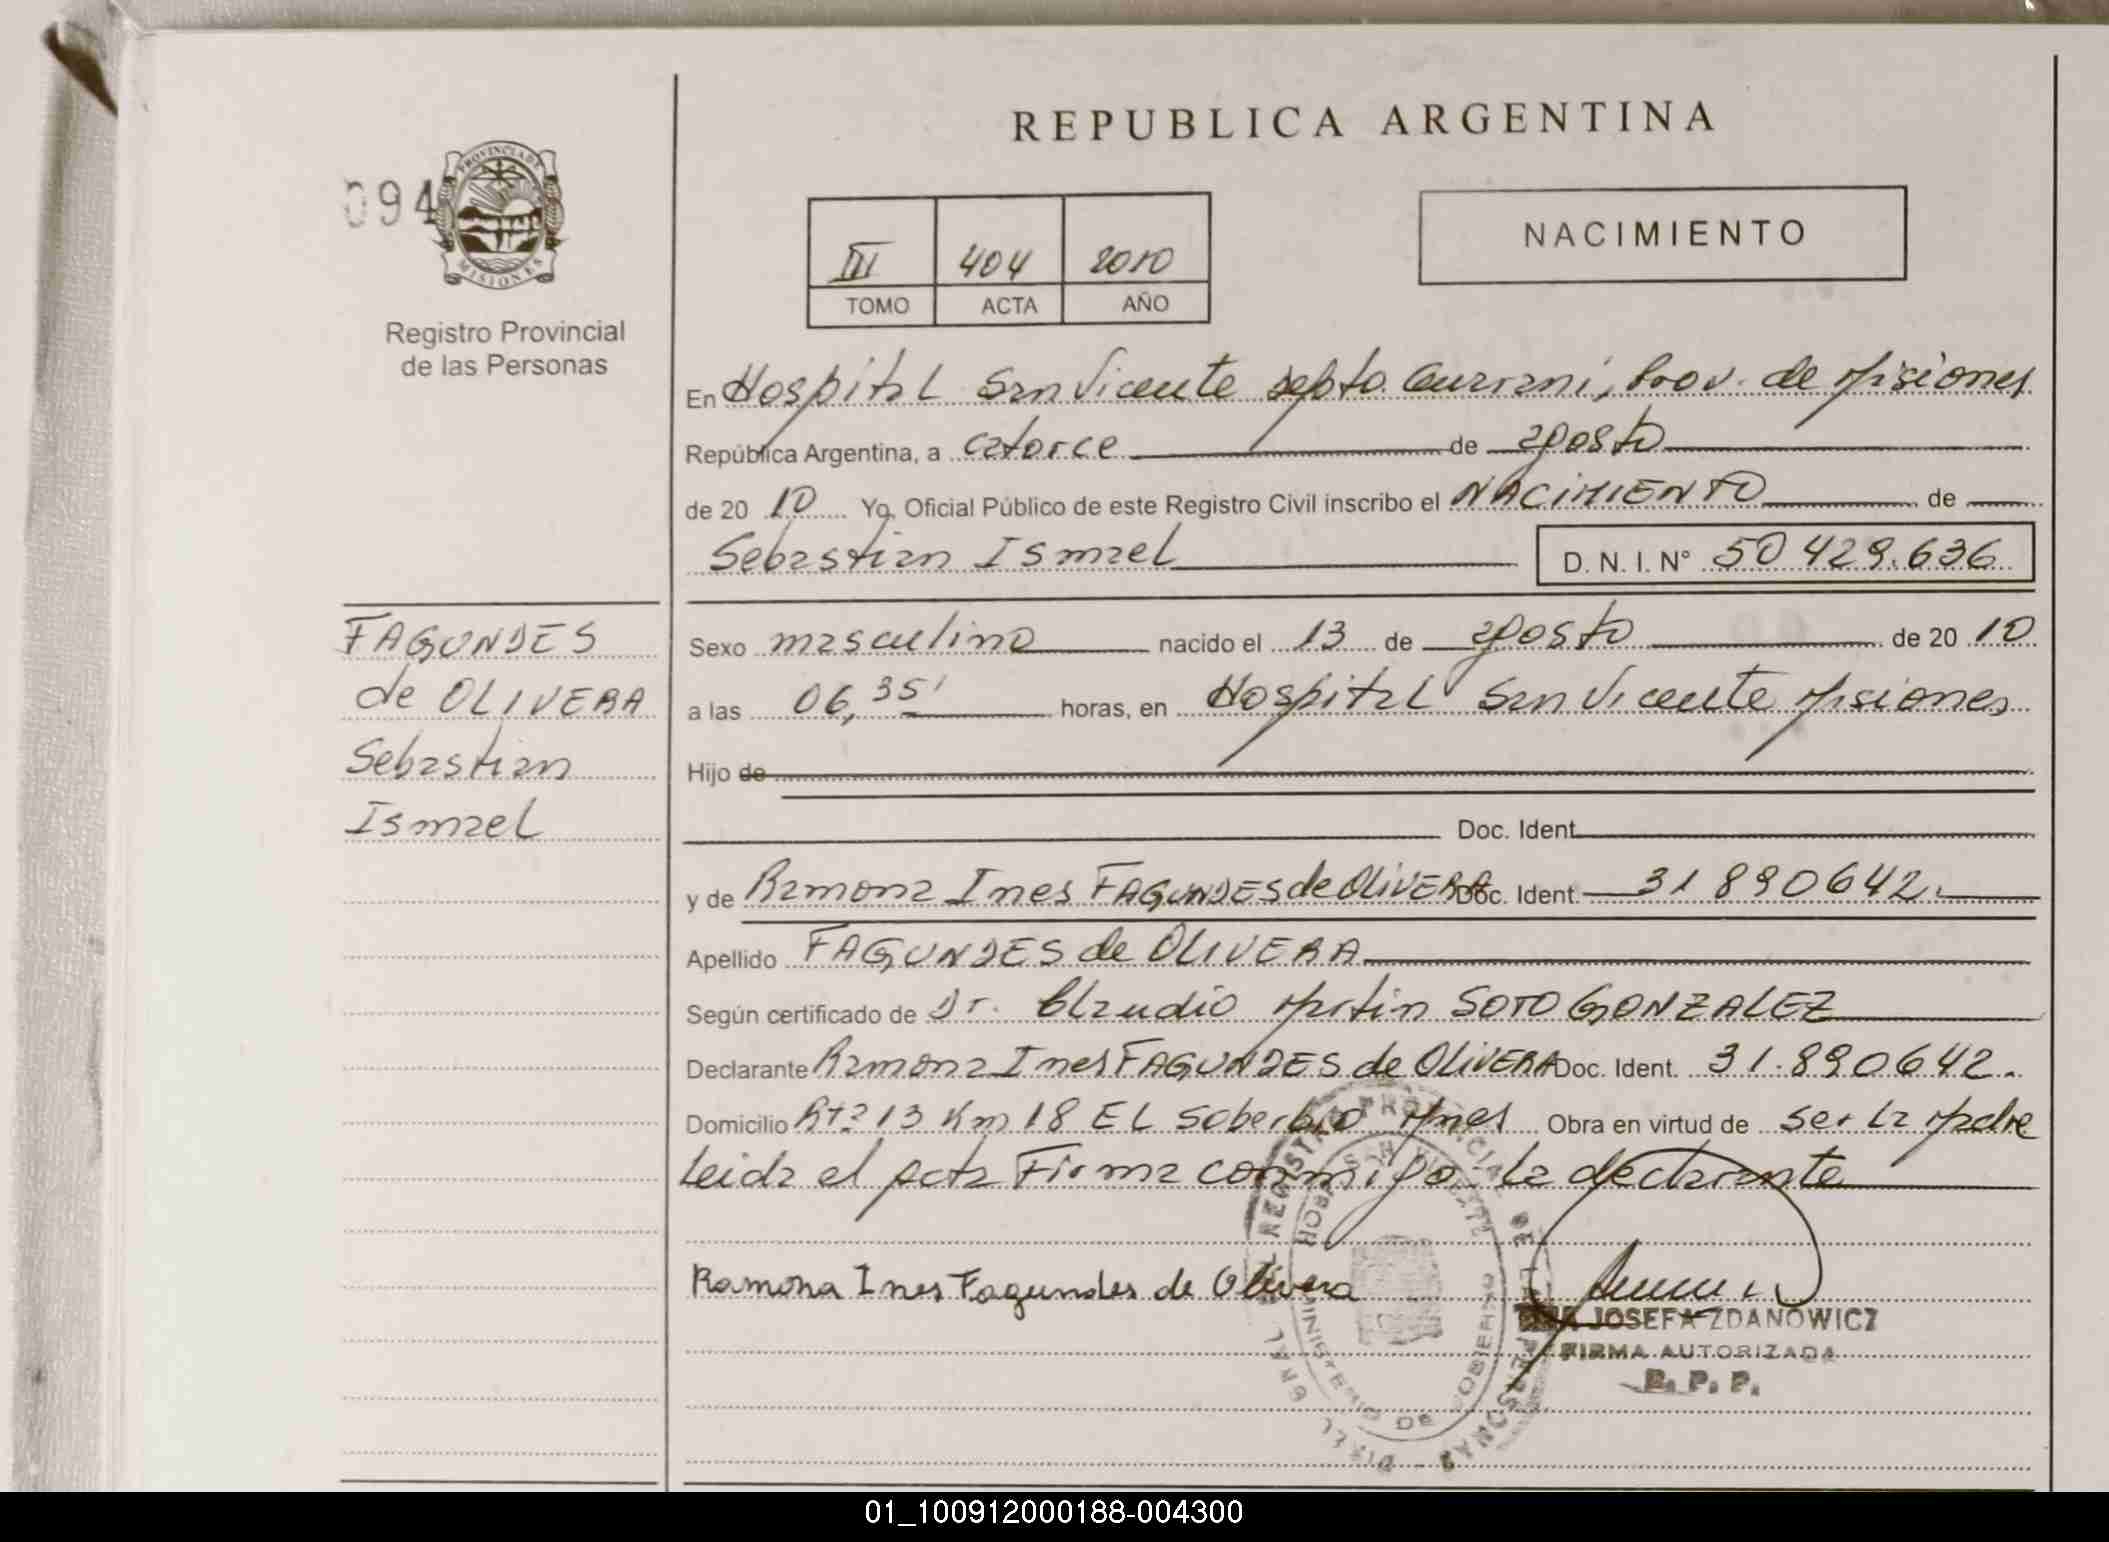 REPUBLICA ARGENTINA
094
PROVINCIA DE
MISIONES
Registro Provincial
de las Personas
III 404 2010
TOMO ACTA AÑO
NACIMIENTO
En Hospital San Vicente Depto. Guarani, Prov. de Misiones
República Argentina, a catorce de agosto
de 20 10 Yo, Oficial Público de este Registro Civil inscribo el NACIMIENTO de
Sebastian Ismael D. N. I. N° 50 429.636
FAGUNDES
de OLIVERA
Sebastian
Ismael
Sexo masculino nacido el 13 de agosto de 20 10
a las 06,35' horas, en Hospital San Vicente Misiones
Hijo de
Doc. Ident.
y de Ramona Ines FAGUNDES de OLIVERA Doc. Ident. 31 890642.
Apellido FAGUNDES de OLIVERA
Según certificado de Dr. Claudio Martin SOTO GONZALEZ
Declarante Ramona Ines FAGUNDES de OLIVERA Doc. Ident. 31.890642.
Domicilio Rta 13 Km 18 EL Soberbio Mnes Obra en virtud de ser la Madre
Leida el Acta Firma conmigo la declarante
Ramona Ines Fagundes de Olivera
JOSEFA ZDANOWICZ
FIRMA AUTORIZADA
R. P. P.
GRAL DEL REGISTRO PROVINCIAL DE LAS PERSONAS
MINISTERIO DE GOBIERNO
01_100912000188-004300